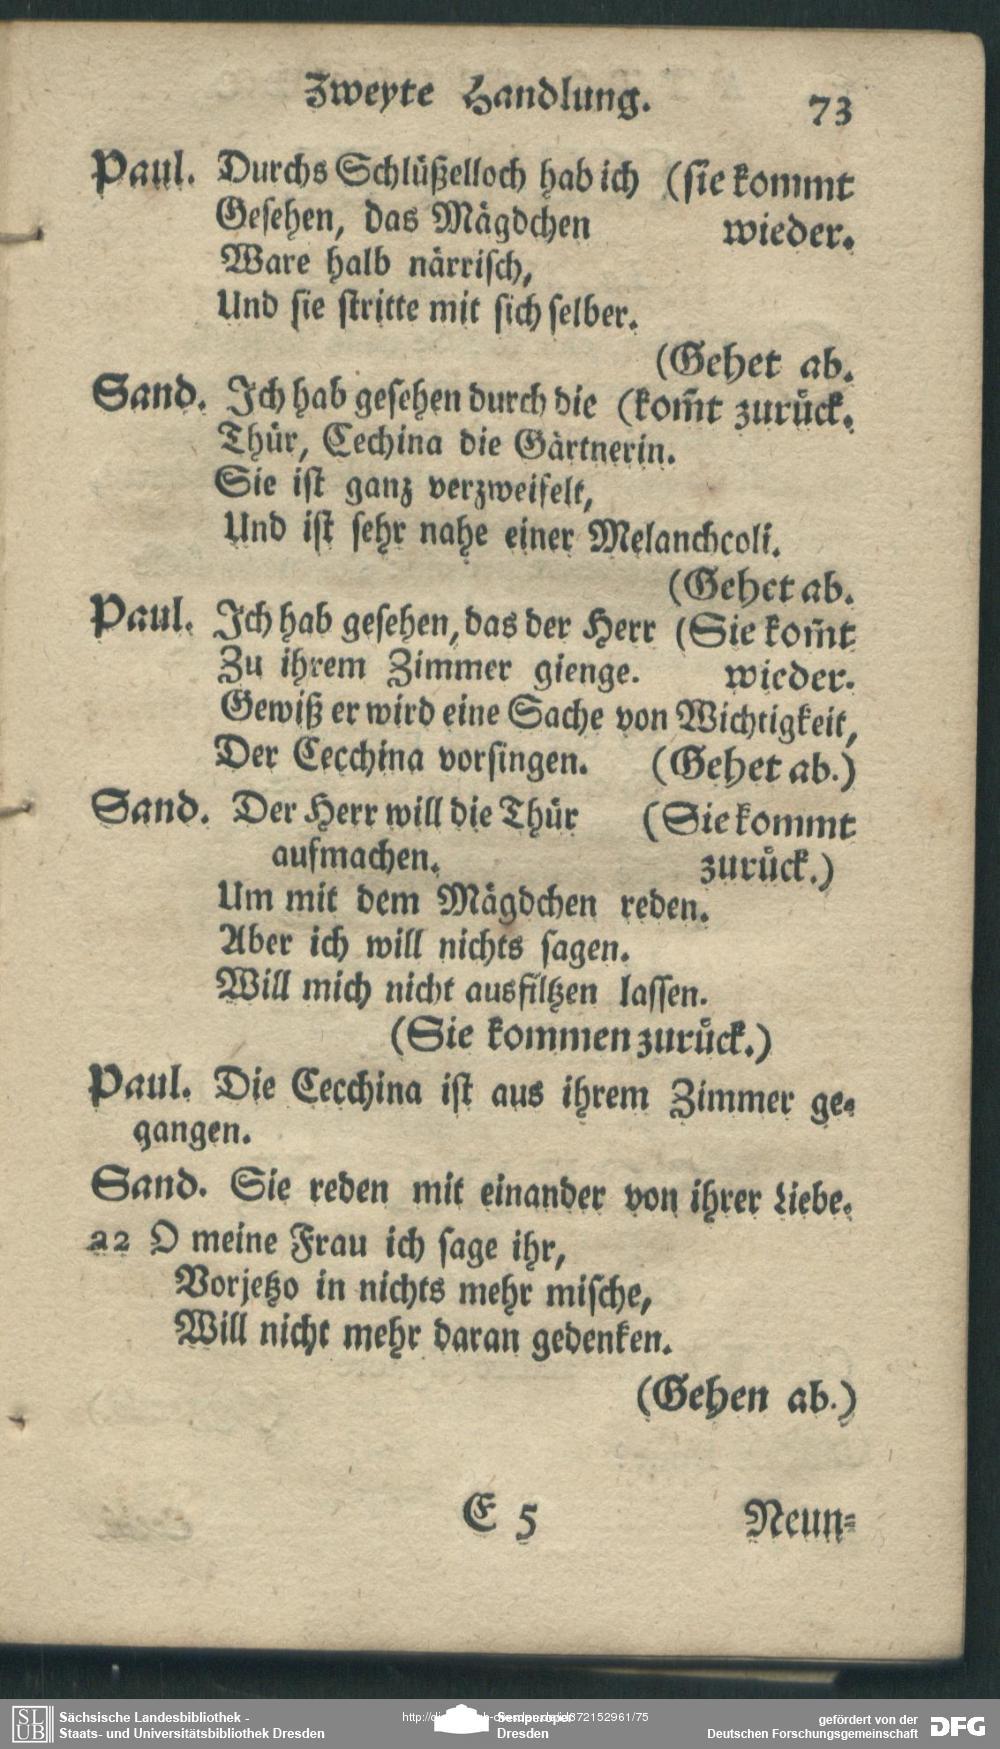 Zweyte Handlung. 73
Paul. Durchs Schlüßelloch hab ich (sie kommt
Gesehen, das Mägdchen wieder.
Ware halb närrisch,
Und sie stritte mit sich selber.
(Gehet ab.
Sand. Ich hab gesehen durch die (kom̃t zurück.
Thür, Cechina die Gärtnerin.
Sie ist ganz verzweifelt,
Und ist sehr nahe einer Melanchcoli.
(Gehet ab.
Paul. Ich hab gesehen, das der Herr (Sie kom̃t
Zu ihrem Zimmer gienge. wieder.
Gewiß er wird eine Sache von Wichtigkeit,
Der Cecchina vorsingen. (Gehet ab.)
Sand. Der Herr will die Thür (Sie kommt
aufmachen. zurück.)
Um mit dem Mägdchen reden.
Aber ich will nichts sagen.
Will mich nicht ausfiltzen lassen.
(Sie kommen zurück.)
Paul. Die Cecchina ist aus ihrem Zimmer ge-
gangen.
Sand. Sie reden mit einander von ihrer Liebe.
a2 O meine Frau ich sage ihr,
Vorjetzo in nichts mehr mische,
Will nicht mehr daran gedenken.
(Gehen ab.)
E 5 Neun-
SLUB Sächsische Landesbibliothek -
Staats- und Universitätsbibliothek Dresden
Semperoper
Dresden
gefördert von der
Deutschen Forschungsgemeinschaft DFG